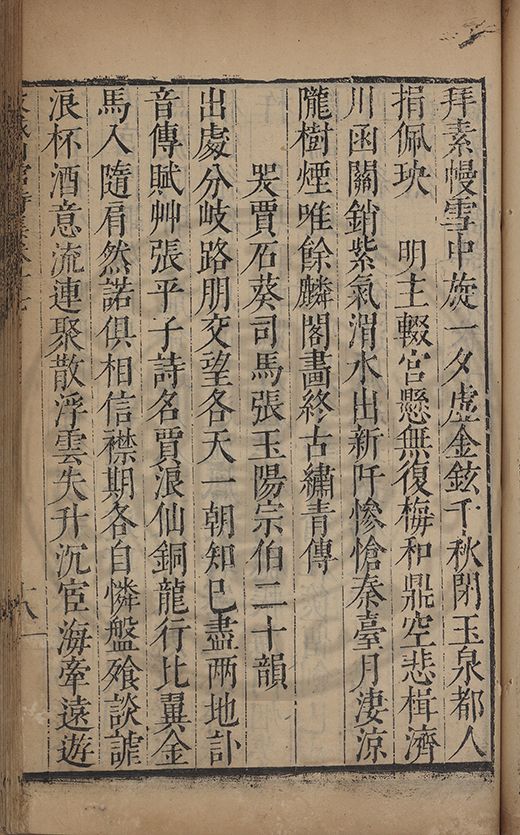 拜素幔雪中旋一夕虛金鉉千秋閉玉泉都人
捐佩玦　明主輟宮懸無復梅和鼎空悲楫濟
川函關銷紫氣渭水出新阡慘愴秦臺月淒涼
隴樹煙唯餘麟閣畫終古繡青傳
哭賈石葵司馬張玉陽宗伯二十韻
出處分岐路朋交望各天一朝知已盡兩地訃
音傳賦艸張平子詩名賈浪仙銅龍行比翼金
馬入隨肩然諾俱相信襟期各自憐盤飱談謔
浪杯酒意流連聚散浮雲失升沉宦海牽遠遊